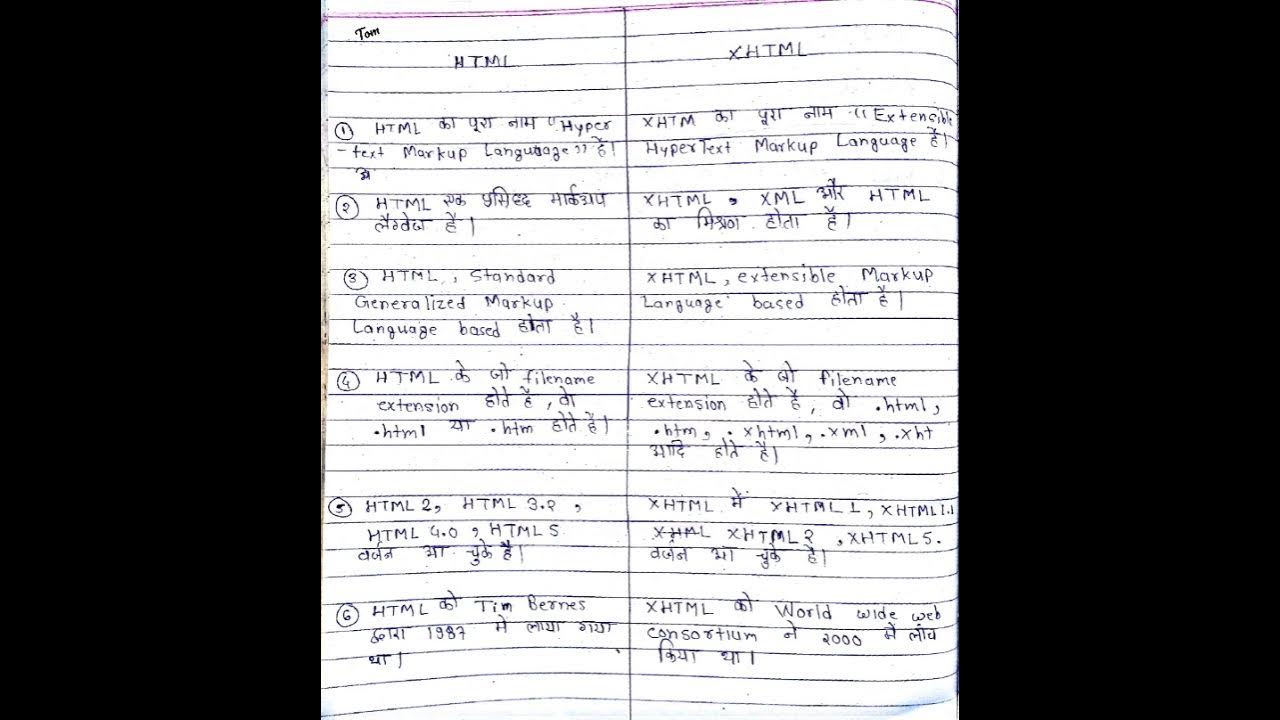 Tom
HTML
XHTML
① HTML का पूरा नाम "Hyper
- text Markup Language" है।
② HTML एक प्रसिध्द मार्कअप
लैंग्वेज है।
③ HTML, Standard
Generalized Markup
Language based होता है।
④ HTML के जो filename
extension होते है, वो
.html या .htm होते है।
⑤ HTML 2, HTML 3.२,
HTML 4.0, HTML 5
वर्जन आ चुके है।
⑥ HTML को Tim Bernes
द्वारा 1987 मे लाया गया
था।
XHTM का पूरा नाम "Extensible
HyperText Markup Language है।
XHTML, XML और HTML
का मिश्रण होता है।
XHTML, extensible Markup
Language based होता है।
XHTML के जो filename
extension होते है, वो .html,
.htm, .xhtml, .xml, .xht
आदि होते है।
XHTML में XHTML 1, XHTML 1.1
XHTML २, XHTML 5.
वर्जन आ चुके है।
XHTML को World wide web
consortium ने २000 मे लांच
किया था।